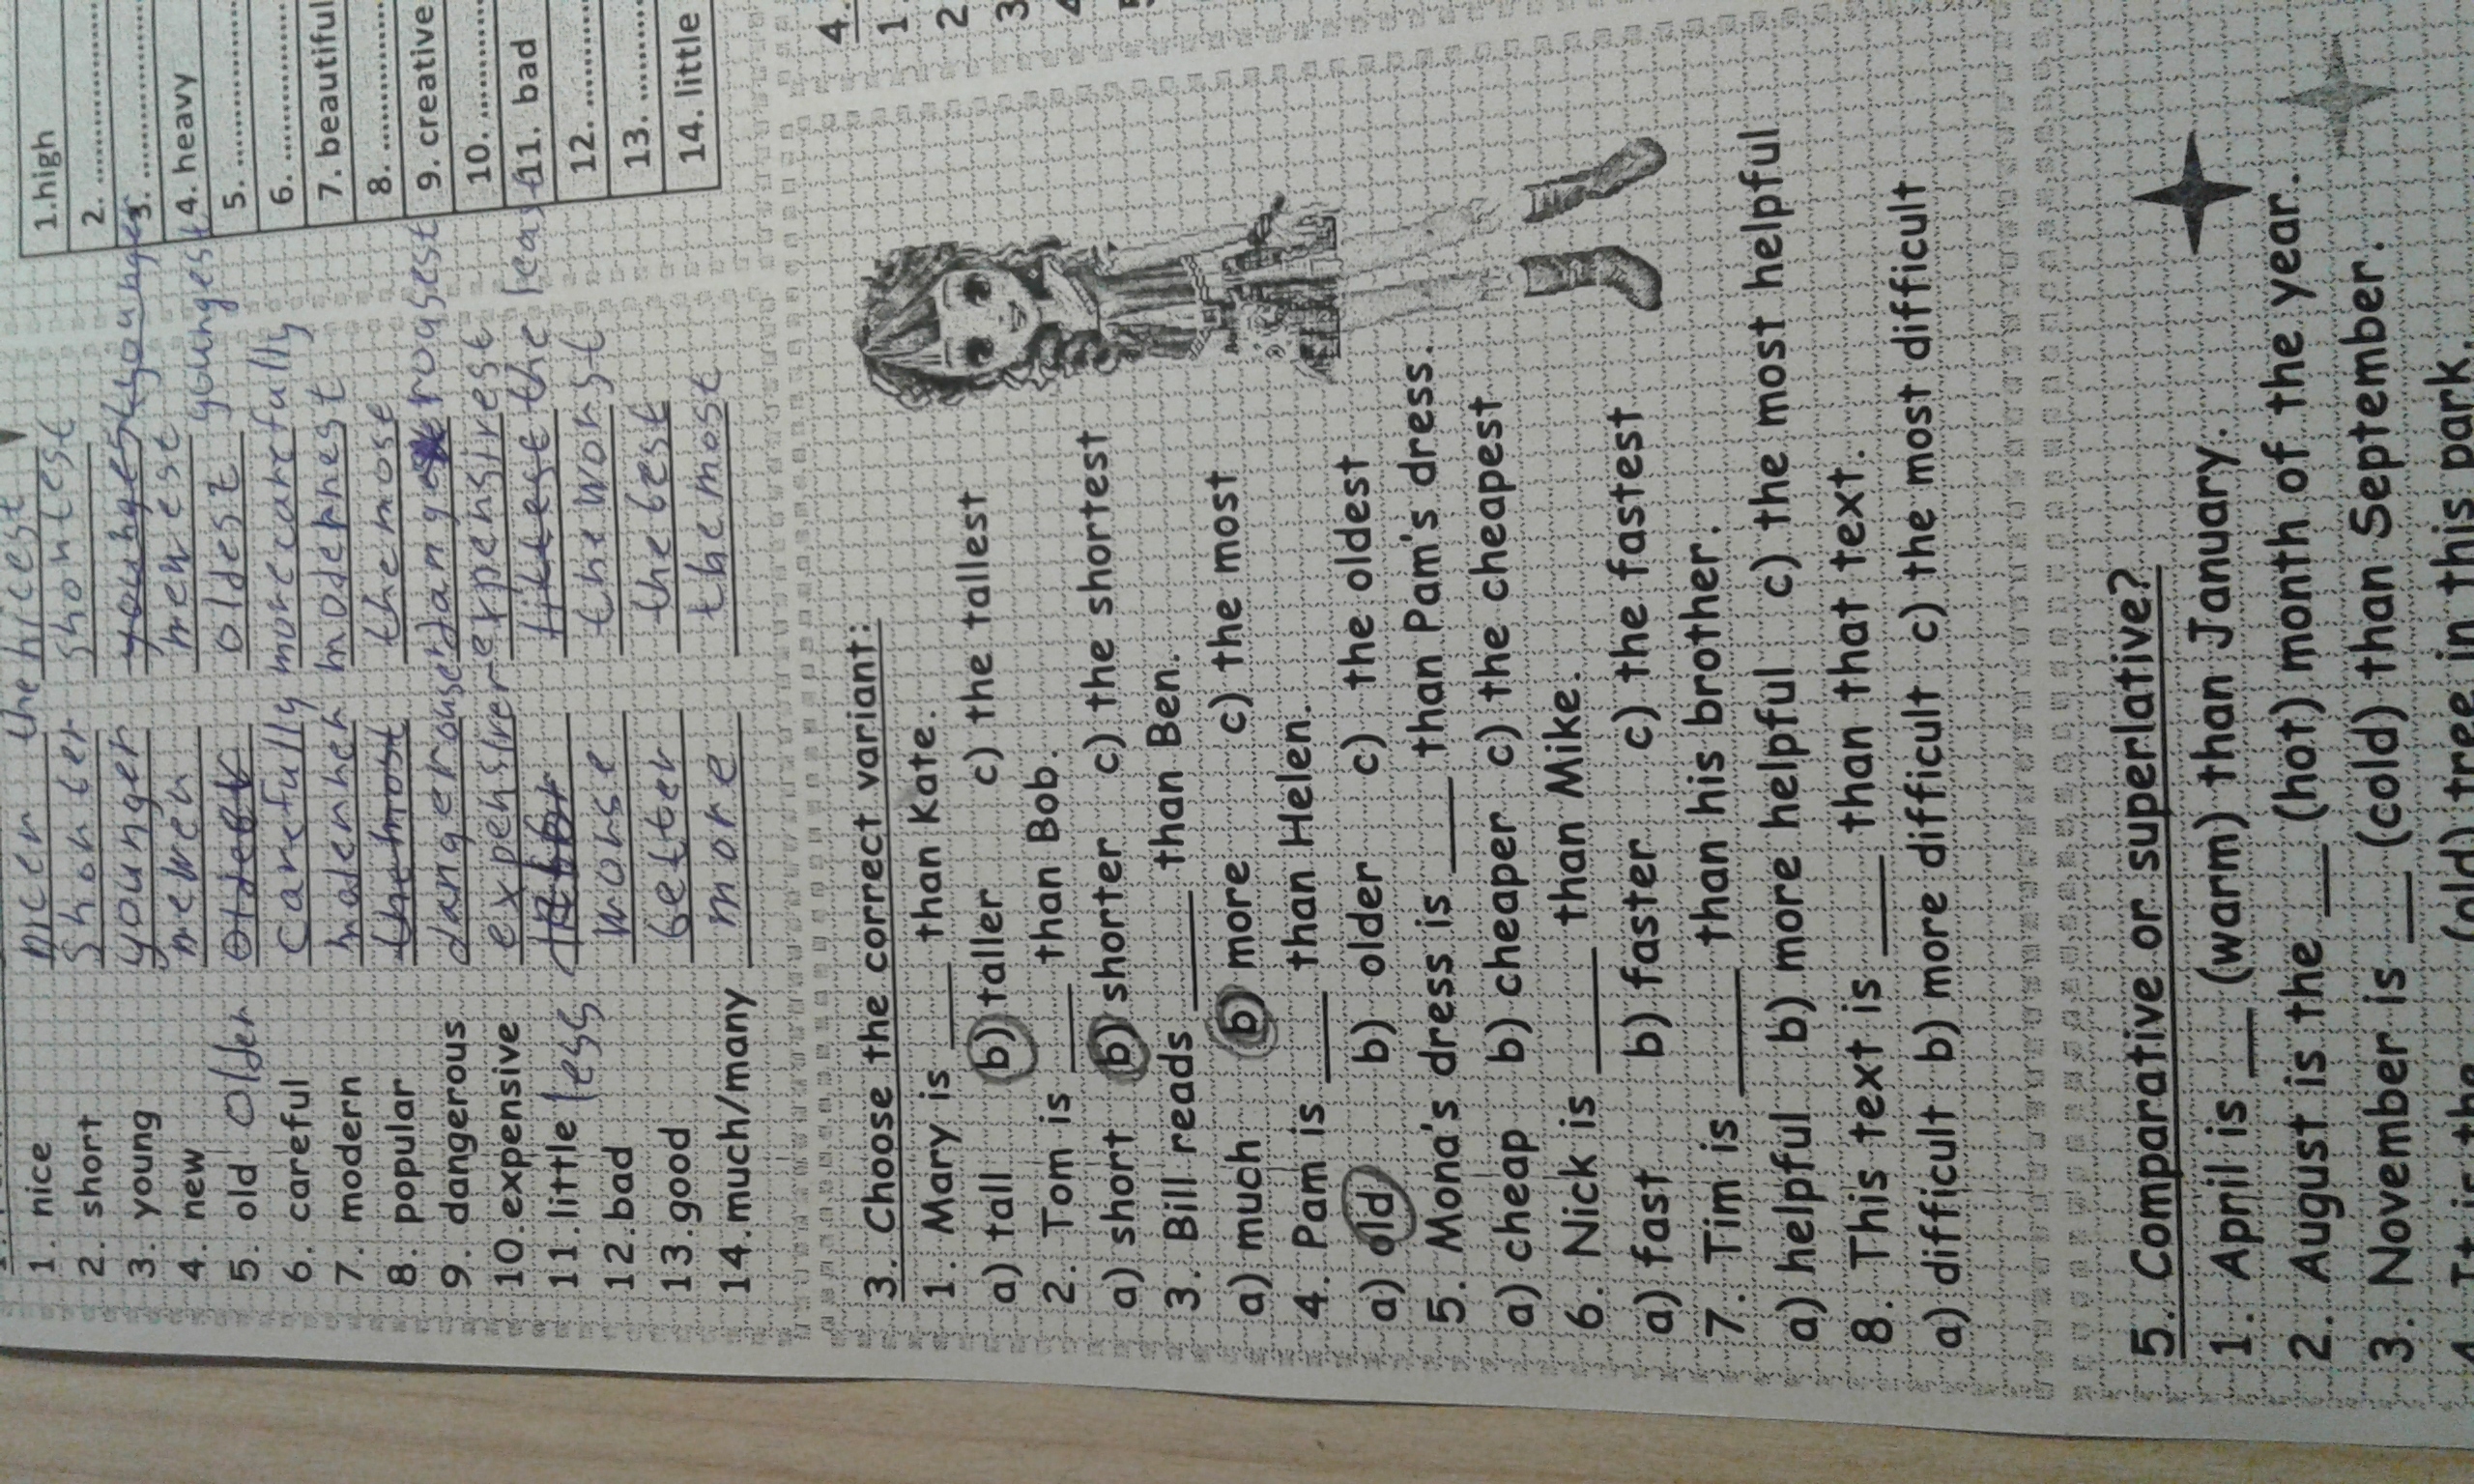 the nicest
1. nice nicer
2. short shorter shortest
3. young younger youngest younger
4. new newer newest youngest
5. old older oldest
6. careful carefully more carefully
7. modern moderner modernest
8. popular the most the most
9. dangerous dangerouser dangerousest
10. expensive expensiver expensivest
11. little less the least
12. bad worse the worst
13. good better the best
14. much/many more the most
3. Choose the correct variant:
1. Mary is ____ than Kate.
a) tall b) taller c) the tallest
2. Tom is ____ than Bob.
a) short b) shorter c) the shortest
3. Bill reads ____ than Ben.
a) much b) more c) the most
4. Pam is ____ than Helen.
a) old b) older c) the oldest
5. Mona's dress is ____ than Pam's dress.
a) cheap b) cheaper c) the cheapest
6. Nick is ____ than Mike.
a) fast b) faster c) the fastest
7. Tim is ____ than his brother.
a) helpful b) more helpful c) the most helpful
8. This text is ____ than that text.
a) difficult b) more difficult c) the most difficult
5. Comparative or superlative?
1. April is __ (warm) than January.
2. August is the __ (hot) month of the year.
3. November is __ (cold) than September.
4. It is the __ (old) tree in this park.
1.high
2. ..............
3. ..............
4. heavy
5. ..............
6. ..............
7. beautiful
8. ..............
9. creative
10. ..............
11. bad
12. ..............
13. ..............
14. little
4.
1.
2
3
4